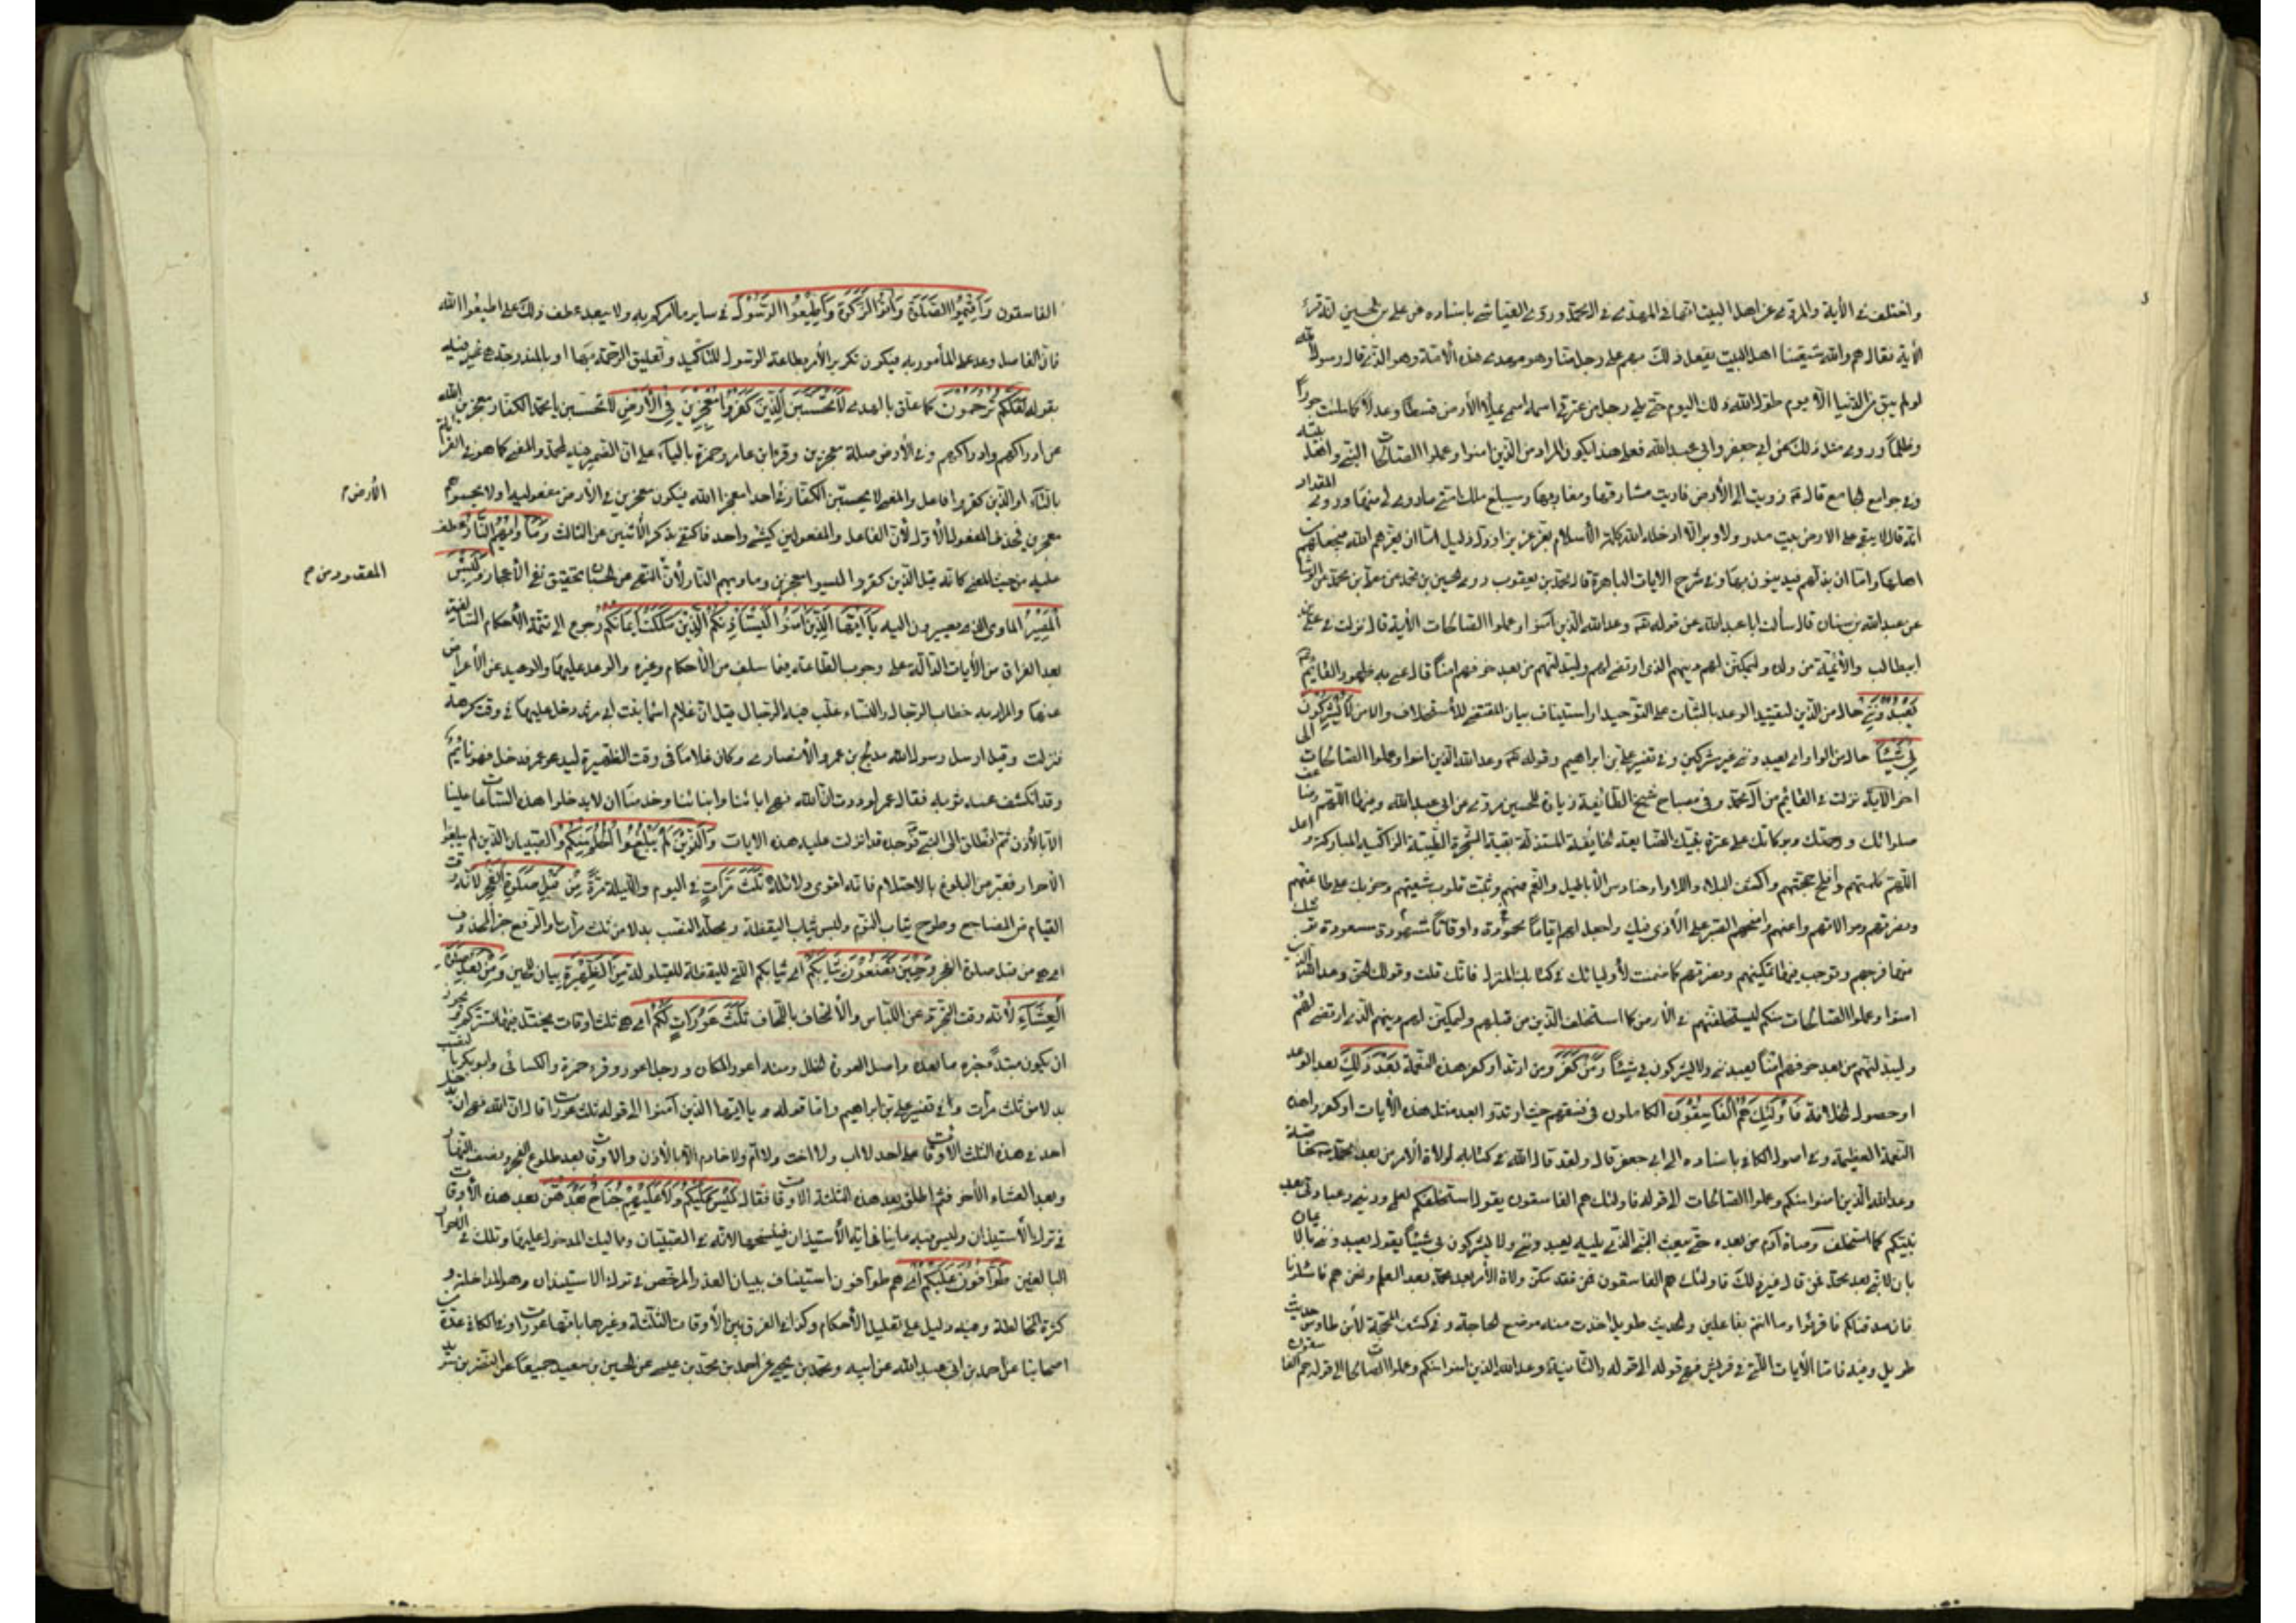 واختلف في الآية والمروي عن اهل البيت انها في المهدي من آل محمد وروى العياشي باسناده عن علي بن الحسين انه قرء
الآية فقال هم والله شيعتنا اهل البيت يفعل ذلك بهم على رجل منا وهو مهدي هذه الأمة وهو الذي قال رسول الله
لو لم يبق من الدنيا الا يوم طول الله ذلك اليوم حتى يلي رجل من عترتي اسمه اسمي يملأ الأرض قسطا وعدلا كما ملئت جورا
وظلما وروى مثل ذلك عن ابي جعفر وابي عبد الله فعلى هذا يكون المراد من الذين امنوا وعملوا الصالحات النبي واهل بيته
وفي جوامع الجامع قال زويت لي الأرض فاريت مشارقها ومغاربها وسيبلغ ملك امتي ما زوى لي منها وروى المقداد
انه قال لا يبقى على الارض بيت مدر ولا وبر الا ادخله الله كلمة الأسلام بعز عزيز او ذل ذليل اما ان يعزهم الله فيجعلهم من
اهلها واما ان يذلهم فيدينون بها وفي شرح الآيات الباهرة قال محمد بن يعقوب روى الحسين بن محمد عن معلى بن محمد عن الوشا
عن عبد الله بن سنان قال سألت ابا عبد الله عن قوله وعد الله الذين آمنوا وعملوا الصالحات الآية قال نزلت في علي بن
ابيطالب والأئمة من ولده وليمكنن لهم دينهم الذي ارتضى لهم وليبدلنهم من بعد خوفهم امنا قال عنى به ظهور القائم
يَعْبُدُونَنِي حال من الذين لتقييد الوعد بالثبات على التوحيد او استيناف ببيان المقتضي للأستخلاف والامن لَا يُشْرِكُونَ
بِي شَيْئًا حال من الواو اي يعبدونني غير مشركين وفي تفسير علي بن ابراهيم وقوله وعد الله الذين امنوا وعملوا الصالحات الى
اخر الآية نزلت في القائم من آل محمد وفي مصباح شيخ الطائفة زيارة للحسين مروية عن ابي عبد الله وفيها اللهم وضاعف
صلواتك ورحمتك وبركاتك على عترة نبيك العترة الضايعة الخائفة المستذلة بقية الشجرة الطيبة الزاكية المباركة واعل
اللهم كلمتهم وافلج حجتهم واكشف البلاء واللاواء وحنادس الأباطيل والغم عنهم وثبت قلوب شيعتهم وحزبك على طاعتهم
ونصرتهم وموالاتهم واعنهم وامنحهم الصبر على الأذى فيك واجعل لهم اياما محمودة واوقاتا مشهودة مسعودة توشك
فيها فرجهم وتوجب فيها تمكينهم ونصرتهم كما ضمنت لأوليائك في كتابك المنزل فانك قلت وقولك الحق وعد الله الذين
امنوا وعملوا الصالحات منكم ليستخلفنهم في الأرض كما استخلف الذين من قبلهم وليمكنن لهم دينهم الذي ارتضى لهم
وليبدلنهم من بعد خوفهم امنا يعبدونني ولا يشركون بي شيئا وَمَنْ كَفَرَ ومن ارتد او كفر هذه النعمة بَعْدَ ذَلِكَ بعد الوعد
او حصول الخلافة فَأُولَئِكَ هُمُ الْفَاسِقُونَ الكاملون في فسقهم حيث ارتدوا بعد مثل هذه الآيات او كفروا هذه
النعمة العظيمة وفي اصول الكافي باسناده الى ابي جعفر قال ولقد قال الله في كتابه لولاة الأمر من بعد محمد خاصة
وعد الله الذين امنوا منكم وعملوا الصالحات الى قوله فاولئك هم الفاسقون يقول استخلفكم لعلمي وديني وعبادتي بعد
نبيكم كما استخلف وصاة آدم من بعده حتى يبعث النبي الذي يليه يعبدونني ولا يشركون بي شيئا يقول يعبدونني بايمان
بان لا نبي بعد محمد فمن قال غير ذلك فاولئك هم الفاسقون فقد مكن ولاة الأمر بعد محمد بعد العلم ونحن هم فاسئلونا
فان صدقناكم فاقروا وما انتم بفاعلين والحديث طويل اخذت منه موضع الحاجة وفي كشف المحجة لأبن طاوس حديث
طويل وفيه فاما الآيات اللتي في قريش فهي قوله الى قوله والثانية وعد الله الذين امنوا منكم وعملوا الصالحات الى قوله هم الفاسقون
الفاسقون وَأَقِيمُوا الصَّلَوةَ وَآتُوا الزَّكَوةَ وَأَطِيعُوا الرَّسُولَ في ساير ما امركم به ولا يبعد عطف ذلك على اطيعوا الله
فان الفاصل وعد على المأمور به فيكون تكرير الأمر بطاعة الرسول للتأكيد وتعليق الرحمة بها او بالمندرجة هي فيه
بقوله لَعَلَّكُمْ تُرْحَمُونَ كما علق بالهدى لَا تَحْسَبَنَّ الَّذِينَ كَفَرُوا مُعْجِزِينَ فِي الْأَرْضِ لا تحسبن يا محمد الكفار معجزين الله
عن ادراكهم واهلاكهم وفي الأرض صلة معجزين وقرء ابن عامر وحمزة بالياء على ان الضمير فيه لمحمد والمعنى كما هو في القرائة
بالتاء او الذين كفروا فاعل والمعنى لا يحسبن الكفار في الأرض احدا معجزا الله فيكون معجزين في الأرض مفعوليه او لا يحسبوهم
معجزين فحذف المفعول الأول لأن الفاعل والمفعولين كشيء واحد فاكتفى بذكر الأثنين عن الثالث وَمَأْوَاهُمُ النَّارُ عطف
عليه من حيث المعنى كانه قيل الذين كفروا ليسوا معجزين وماويهم النار لأن المقصود من النهي عن الحسبان تحقيق نفي الأعجاز وَلَبِئْسَ
الْمَصِيرُ الماوى الذي يصيرون اليه يَا أَيُّهَا الَّذِينَ آمَنُوا لِيَسْتَأْذِنْكُمُ الَّذِينَ مَلَكَتْ أَيْمَانُكُمْ رجوع الى تتمة الأحكام السالفة
بعد الفراغ من الآيات الدالة على وجوب الطاعة فيما سلف من الأحكام وغيره والوعد عليها والوعيد عن الأعراض
عنها والمراد به خطاب الرجال والنساء غلب فيه الرجال قيل ان غلام اسما بنت ابي مرثد دخل عليها في وقت كرهته
فنزلت وقيل ارسل رسول الله مدلج بن عمرو الأنصاري وكان غلاما في وقت الظهيرة ليدعو عمر فدخل وهو نائم
وقد انكشف عنه ثوبه فقال عمر لوددت ان الله نهى ابائنا وابنائنا وخدمنا ان لا يدخلوا هذه الساعات علينا
الا بالأذن ثم انطلق الى النبي فوجده قد انزلت عليه هذه الايات وَالَّذِينَ لَمْ يَبْلُغُوا الْحُلُمَ مِنْكُمْ والصبيان الذين لم يبلغوا
الأحرار فعبر عن البلوغ بالاحتلام فانه اقوى دلائله ثَلَثَ مَرَّاتٍ في اليوم والليلة مرة مِنْ قَبْلِ صَلَوةِ الْفَجْرِ لأنه وقت
القيام من المضاجع وطرح ثياب النوم ولبس ثياب اليقظة ومحله النصب بدلا من ثلث مرات او الرفع خبر المحذوف
اي هي من قبل صلوة الفجر وَحِينَ تَضَعُونَ ثِيَابَكُمْ اي ثيابكم اللتي لليقظة للقيلولة مِنَ الظَّهِيرَةِ بيان للحين وَمِنْ بَعْدِ صَلَوةِ
الْعِشَاءِ لأنه وقت التجرد عن اللباس والألتحاف باللحاف ثَلَثُ عَوْرَاتٍ لَكُمْ اي هي ثلث اوقات يختل فيها تستركم ويجوز
ان يكون مبتدأ خبره ما بعده واصل العورة الخلل ومنه اعور المكان ورجل اعور وقرء حمزة والكسائي وابو بكر بالنصب
بدلا من ثلث مرات وفي تفسير علي بن ابراهيم واما قوله يا ايها الذين آمنوا الى قوله ثلث عورات قال ان الله نهى ان يدخل
احد في هذه الثلث الأوقات على احد لا اب ولا اخت ولا ام ولا خادم الا بالأذن والاوقات بعد طلوع الفجر ونصف النهار
وبعد العشاء الأخر ثم اطلق بعد هذه الثلثة الاوقات فقال لَيْسَ عَلَيْكُمْ وَلَا عَلَيْهِمْ جُنَاحٌ بَعْدَهُنَّ بعد هذه الأوقات
في ترك الأستيذان وليس فيه ما ينافي اية الأستيذان فينسخها لأنه في الصبيان ومماليك المدخول عليها وتلك في الأحرار
البالغين طَوَّافُونَ عَلَيْكُمْ اي هم طوافون استيناف ببيان العذر المرخص في ترك الاستيذان وهو المداخلة و
كثرة المخالطة وفيه دليل على تعليل الأحكام وكذا في الفرق بين الأوقات الثلثة وغيرها بانها عورات وفي الكافي عدة من
اصحابنا عن احمد بن ابي عبد الله عن ابيه ومحمد بن يحيى عن احمد بن محمد بن عيسى عن الحسين بن سعيد جميعا عن النضر بن سويد
الأرض م
المقصود من م